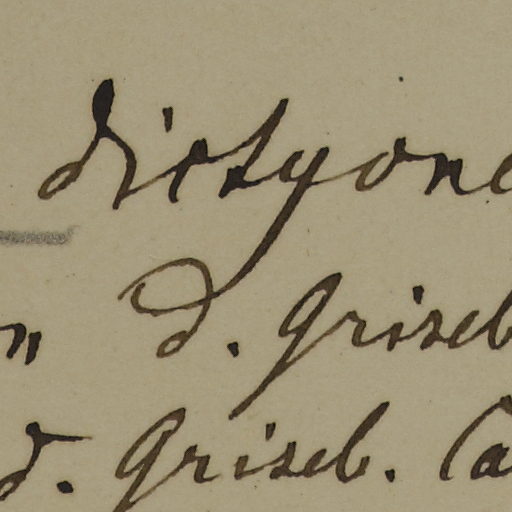 dictyone
n D. Griseb
d. Griseb. Ca